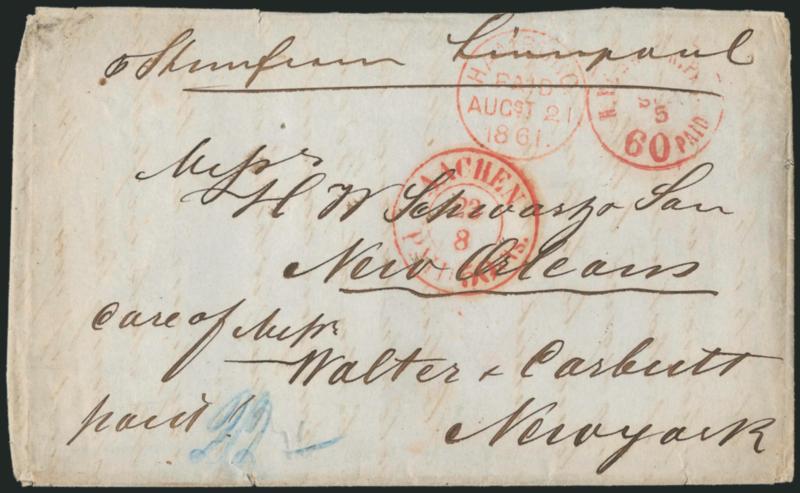 p Steamer from Liverpool
HAMBURG
PAID
AUGST 21
1861.
5
60 PAID
AACHEN
22
8
Messrs
H W Schwartz Son
New Orleans
care of Messrs
Walter & Carbutt
paid! 22
New york